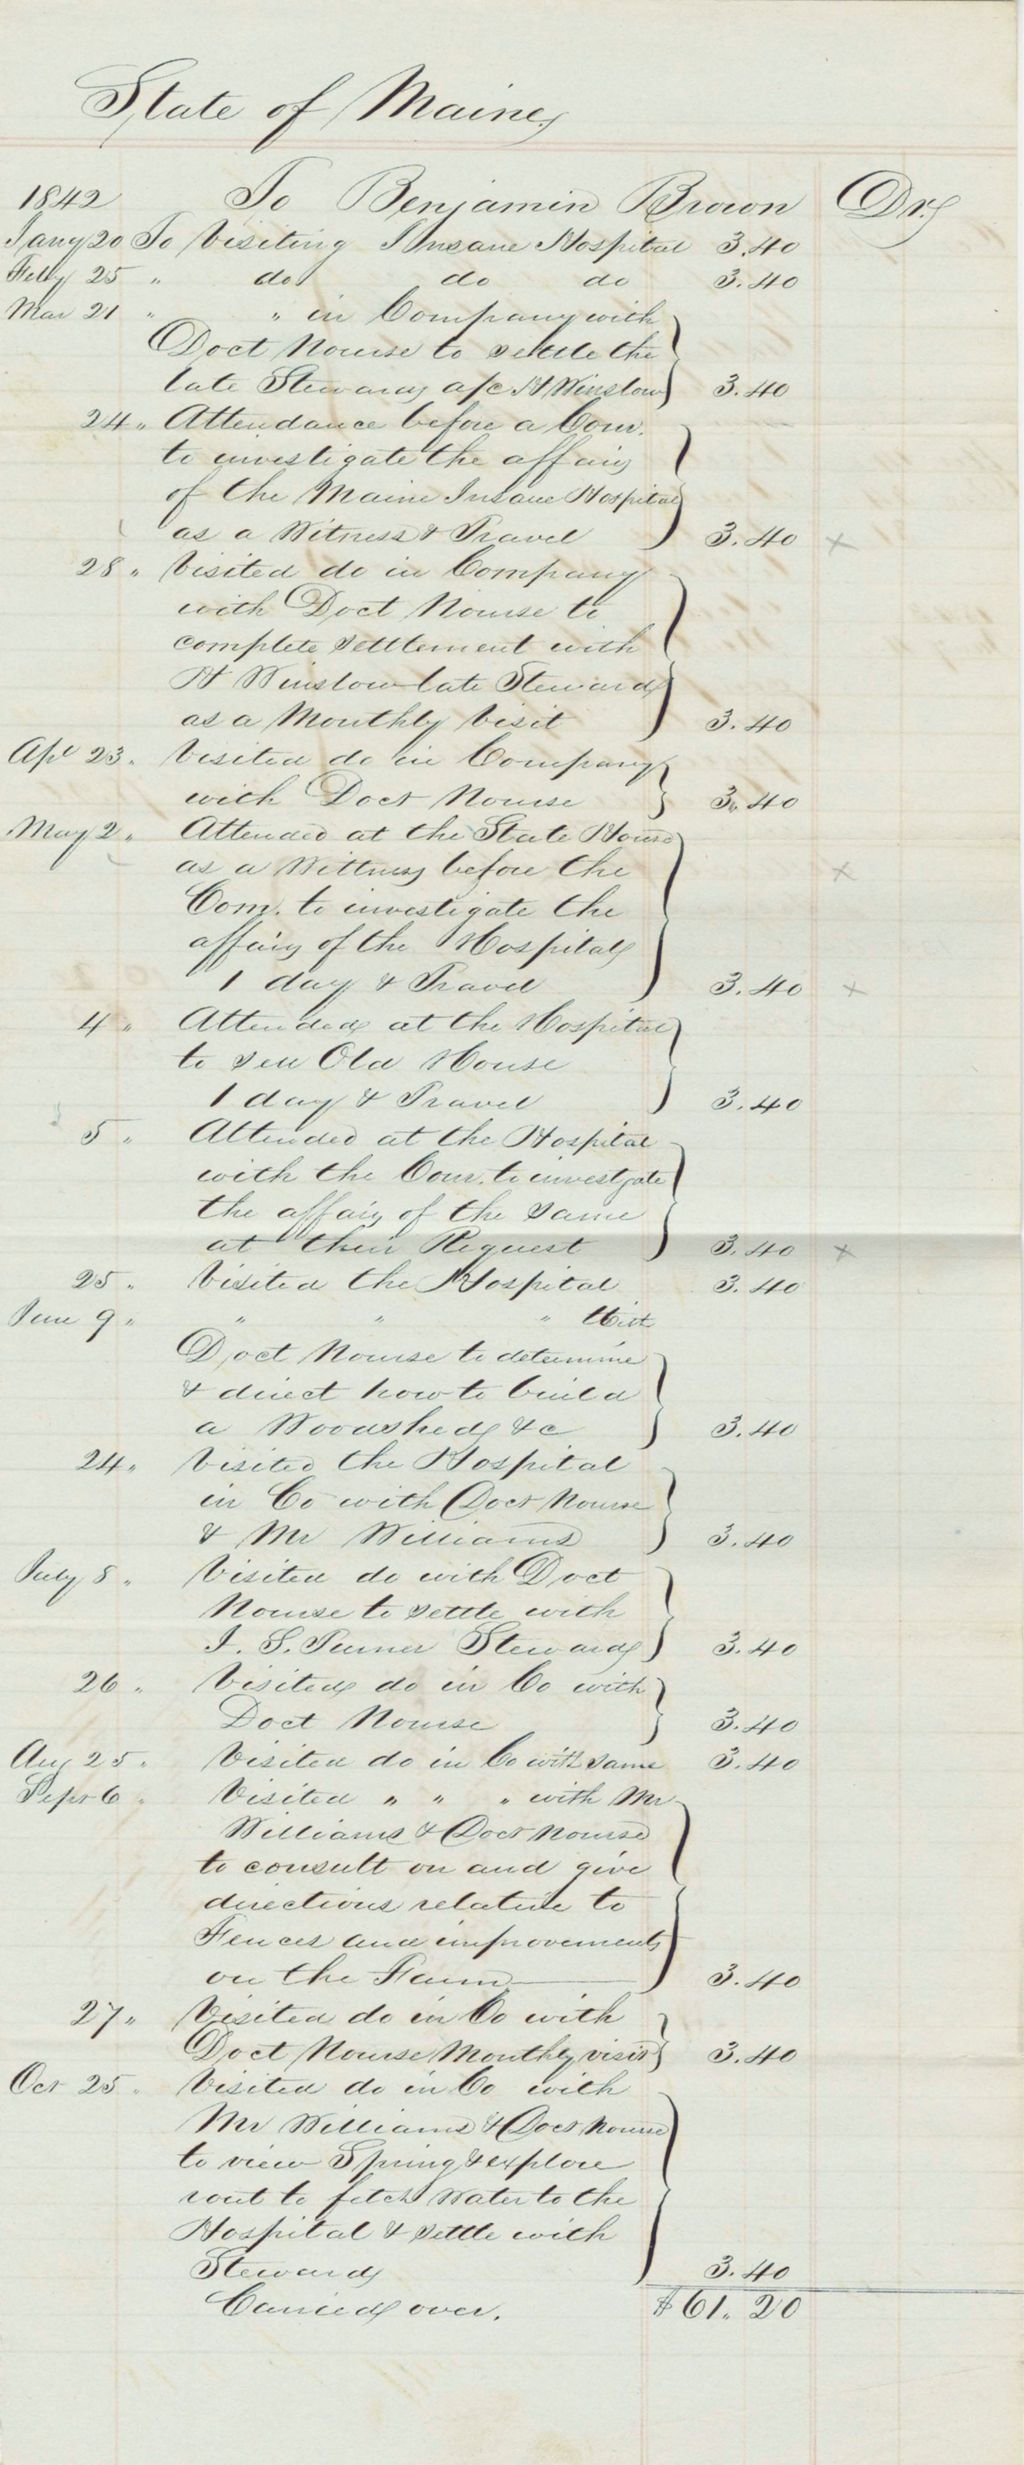 State of Maine
1842 To Benjamin Brown Dr.
Jany 20 To Visiting Insane Hospital 3.40
Feby 25 " do do do 3.40
Mar 21 " " in Company with
Doct Nourse to settle the
late Steward a/c H Winslow 3.40
24 " Attendance before a Com.
to investigate the affairs
of the Maine Insane Hospital
as a Witness & Travel 3.40 x
28 " Visited do in Company
with Doct Nourse to
complete settlement with
H Winslow late Steward
as a Monthly Visit 3.40
Apl 23 " Visited do in Company
with Doct Nourse 3.40
May 2 " Attended at the State House
as a Wittness before the x
Com. to investigate the
affairs of the Hospital
1 day & Travel 3.40 x
4 " Attended at the Hospital
to sell Old House
1 day & Travel 3.40
5 " Attended at the Hospital
with the Com. to investgate
the affairs of the same
at their Request 3.40 x
25 " Visited the Hospital 3.40
June 9 " " " " With
Doct Nourse to determine
& direct how to build
a Woodshed &c 3.40
24 " Visited the Hospital
in Co with Doct Nourse
& Mr Williams 3.40
July 8 " Visited do with Doct
Nourse to settle with
I. S. Turner Steward 3.40
26 " Visited do in Co with
Doct Nourse 3.40
Aug 25 " Visited do in Co with same 3.40
Sept 6 " Visited " " " with Mr
Williams & Doct Nourse
to consult on and give
directions relative to
Fences and improvements
on the Farm 3.40
27 " Visited do in Co with
Doct Nourse Monthly visit 3.40
Oct 25 " Visited do in Co with
Mr Williams & Doct Nourse
to view Spring & explore
rout to fetch Water to the
Hospital & settle with
Steward 3.40
Carried over. $61.20